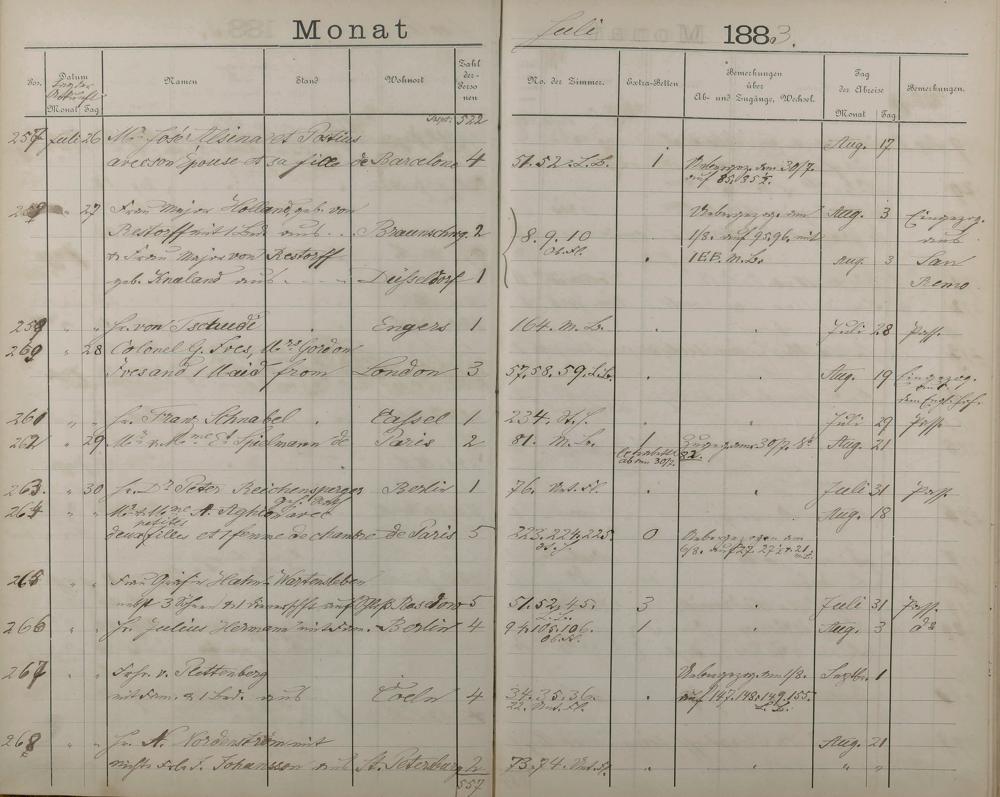 Monat Juli 1883.
Pos. Datum Namen Stand Wohnort Zahl der Personen No. der Zimmer. Extra-Betten Bemerkungen über Ab- und Zugänge, Wechsel. Tag der Abreise Bemerkungen.
Monat Tag Monat Tag
Trspt: 522
257 Juli 26 Mr. José Alsina et Postius Aug. 17
avec son Épouse et sa fille de Barcelone 4 51.52. L.B. 1 Uebergezog. am 30/7.
auf 85. 35 I.
258 " 27 Frau Major Holland, geb. von Uebergezog. am Aug. 3 Eingezog.
Restorff mit 1 Bed. aus Braunschwg. 2 8. 9. 10 1/8. auf 95.96. mit aus
u. Frau Major von Restorff . 1 E.B. M.B. Aug. 3 San
geb. Knaland aus Düsseldorf 1 Remo
259 " " Hr. von Tschudi Engers 1 164. M.B. . . Juli 28 Pass.
260 " 28 Colonel G. Ives, Mrs. Gordon
Ives and 1 Maid from London 3 57. 58. 59. L.B. . . Aug. 19 Eingezog.
261 " " Hr. Franz Schnabel Cassel 1 234. . . Juli 29 Pass.
262 " 29 Mr. & Mme. Et. Spielmann de Paris 2 81. M.B. 1 30/7. 82. Aug. 21
ab am 30/7.
263. " 30 Hr. Dr. Peter Reichensperger Berlin 1 76. Unt. St. . " Juli 31 Pass.
264 " " Mr. & Mme. A. avec Aug. 18
petites
deux filles et 1 femme de chambre de Paris 5 223. 224. 225. 0 Uebergezogen am
6/8. auf 27. 27
265 " " Frau Gräfin Hahn-Wartensleben
nebst 3 Söhnen & 1 auf Schloss Basedow 5 51. 52. 45. 3 " Juli 31 Pass.
266 " " Hr. Julius Hermann mit Fam. Berlin 4 94. 105. 106. 1 " Aug. 3 do
Ob. St.
267 " " Frhr. v. Plettenberg Uebergezog. am 1/8. Septbr. 1
mit Fam. & 1 Bed. aus Coeln 4 34. 35. 36. . auf 147. 148. 149. 155.
22. Unt. St. L.B.
268 " " Hr. N. Nordenström mit Aug. 21
Nichte Frl. S. Johansson aus St. Petersburg 2 73. 74. Unt. St. . " " "
557